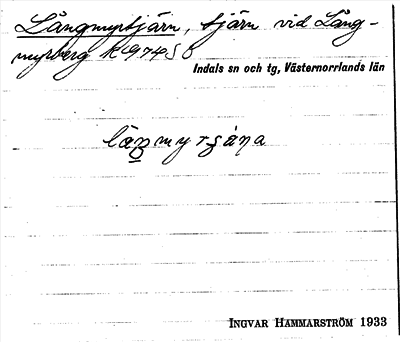 Långmyrtjärn, tjärn vid Lång-
myrberg
Indals sn och tg, Västernorrlands län
INGVAR HAMMARSTRÖM 1933